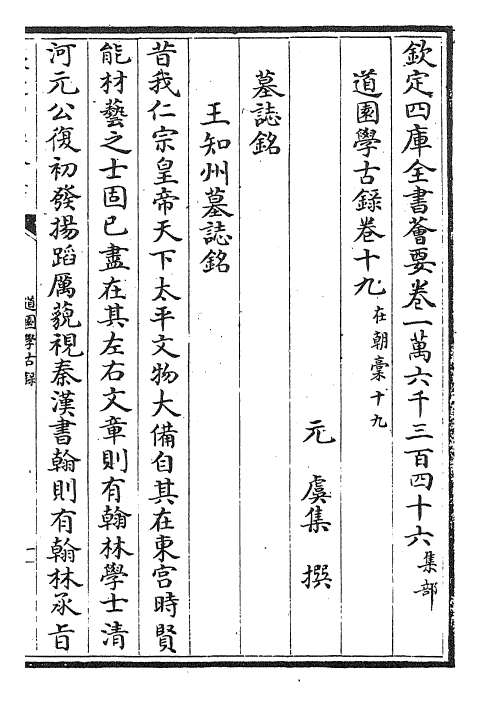 欽定四庫全書薈要卷一萬六千三百四十六集部
道園學古錄卷十九在朝稾十九
元 虞集 撰
墓誌銘
王知州墓誌銘
昔我仁宗皇帝天下太平文物大備自其在東宫時賢
能材藝之士固已盡在其左右文章則有翰林學士清
河元公復初發揚蹈厲藐視秦漢書翰則有翰林承旨
道園學古録